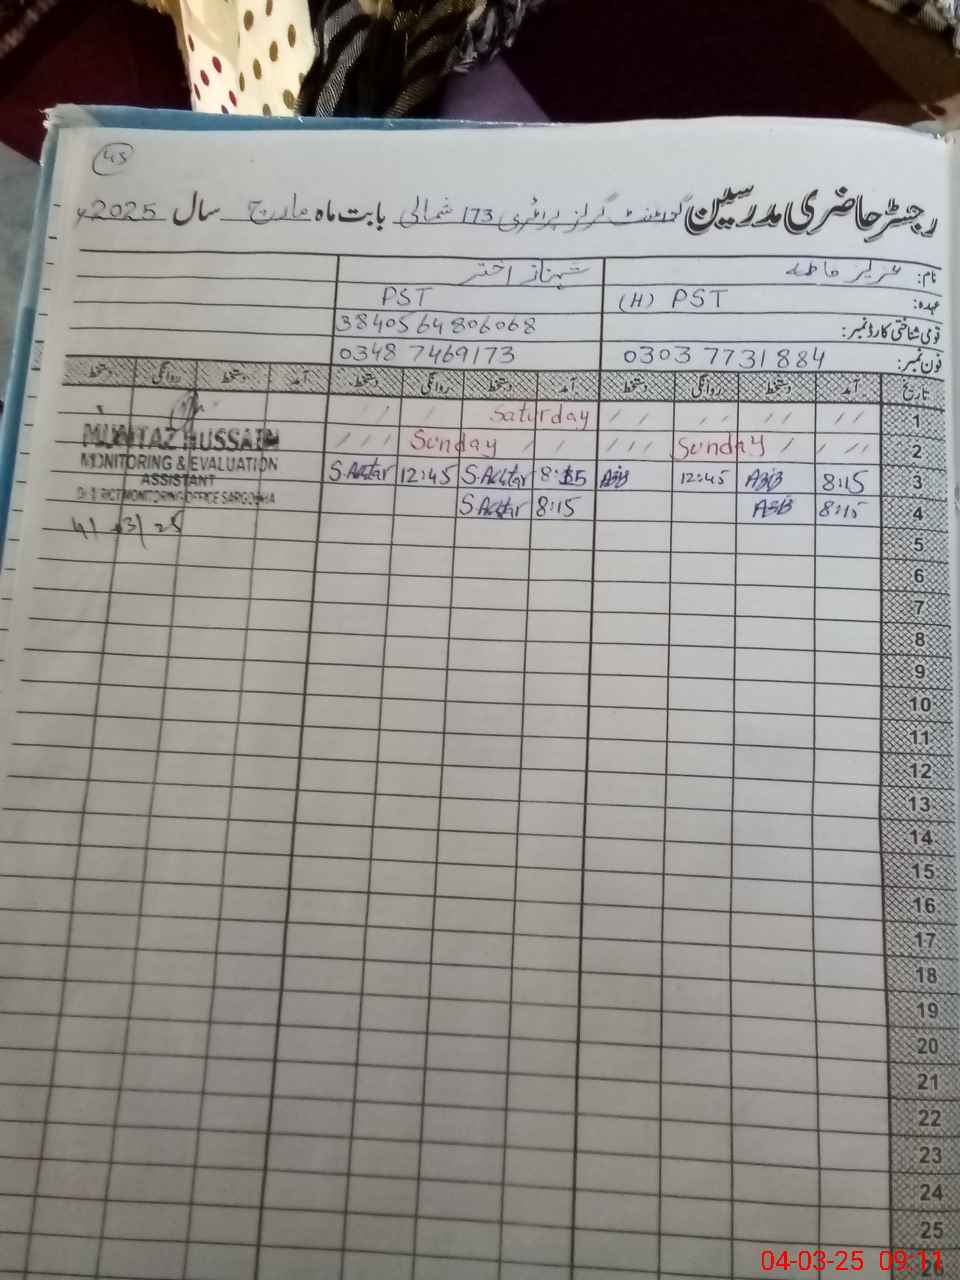 45
رجسٹر حاضری مدرسین گورنمنٹ گرلز پرائمری 173 شمالی بابت ماہ مارچ سال 2025ء
نام: عزیز فاطمہ شہناز اختر
عہدہ: (H) PST PST
قومی شناختی کارڈ نمبر: 3840564806068
فون نمبر: 0303 7731884 0348 7469173
تاریخ آمد دستخط روانگی دستخط آمد دستخط روانگی دستخط آمد دستخط روانگی دستخط
1 Saturday
2 Sunday Sunday
3 8:15 12:45 8:15 S.Akhtar 12:45 S.Akhtar
4 8:15 8:15 S.Akhtar
MUMTAZ HUSSAIN
MONITORING & EVALUATION
ASSISTANT
DISTRICT MONITORING OFFICE SARGODHA
4/03/25
5
6
7
8
9
10
11
12
13
14
15
16
17
18
19
20
21
22
23
24
25
26
04-03-25 09:11